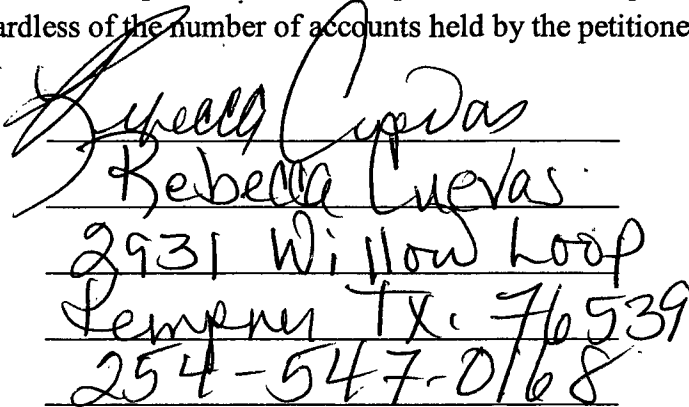 ardless of the number of accounts held by the petitione
Rebecca Cuevas
Rebecca Cuevas
2931 Willow Loop
Kempner TX. 76539
254-547-0168